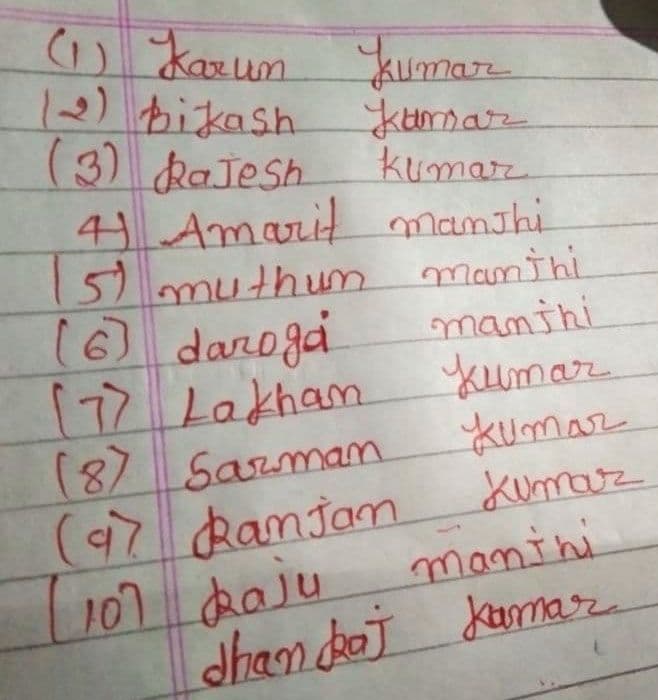 (1) Karun Kumar
(2) bikash Kumar
(3) Rajesh Kumar
4) Amarit manJhi
(5) muthun manjhi
(6) daroga manjhi
(7) Lakhan Kumar
(8) Sarman Kumar
(9) Ranjan Kumar
(10) Raju manjhi
dhanRaj Kumar